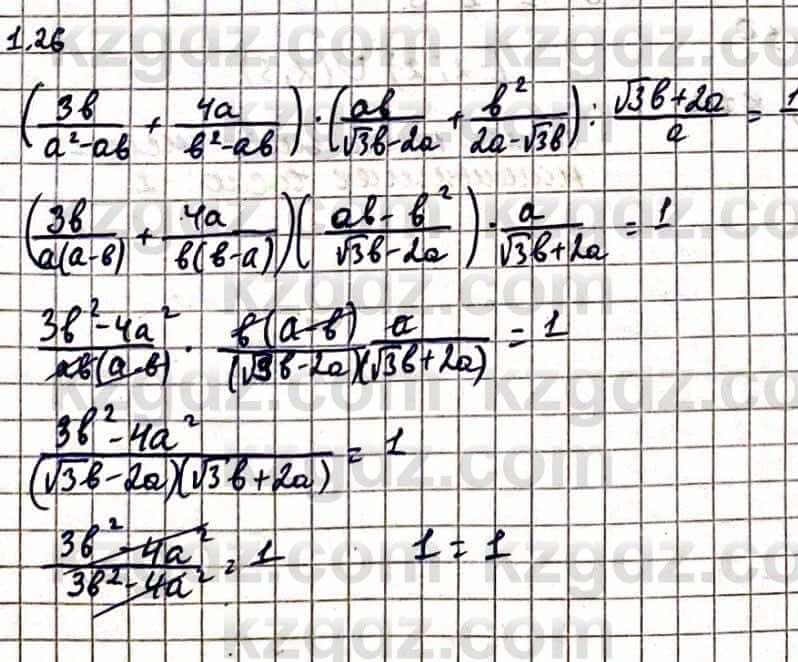 1.26
(3b/(a²-ab) + 4a/(b²-ab)) · (ab/(√3b-2a) + b²/(2a-√3b)) : (√3b+2a)/a = 1
(3b/(a(a-b)) + 4a/(b(b-a))) ((ab-b²)/(√3b-2a)) · a/(√3b+2a) = 1
(3b²-4a²)/(ab(a-b)) · (b(a-b) a)/((√3b-2a)(√3b+2a)) = 1
(3b²-4a²)/((√3b-2a)(√3b+2a)) = 1
(3b²-4a²)/(3b²-4a²) = 1 1 = 1
kzgdz.com